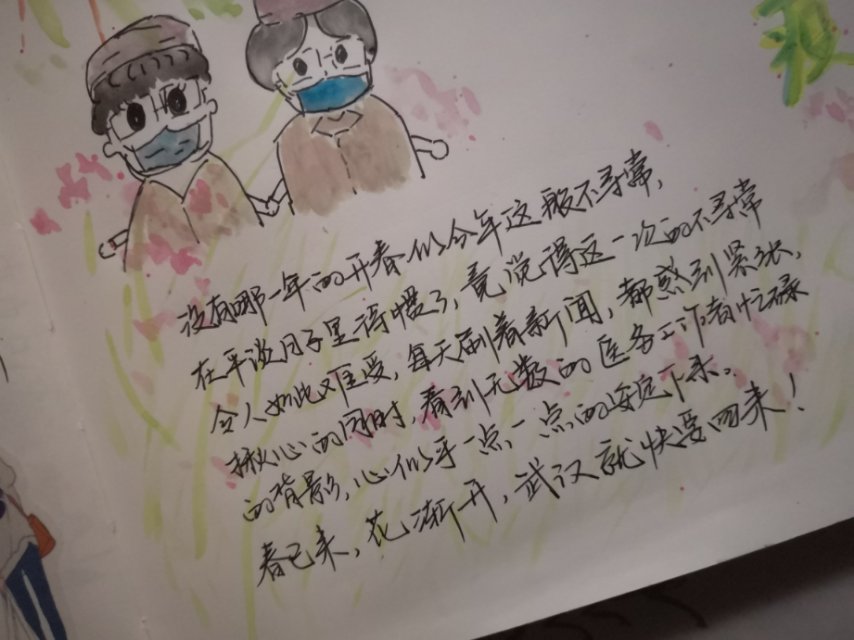 没有哪一年的开春似今年这般不寻常，
在平淡日子里待惯了，竟觉得这一次的不寻常
令人如此难受，每天刷着新闻，都感到紧张，
揪心的同时，看到无数的医务工作者忙碌
的背影，心似乎一点一点的安定下来。
春已来，花渐开，武汉就快要回来！